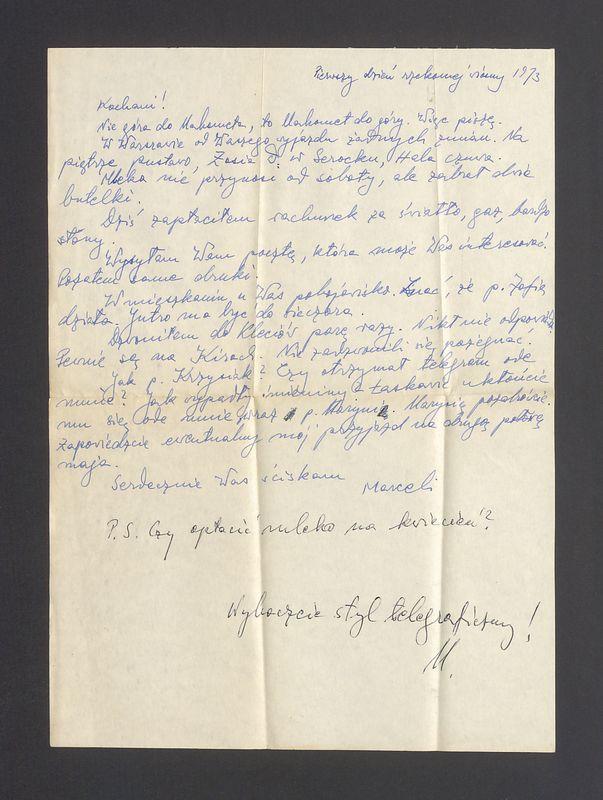 Pierwszy dzień rzekomej wiosny 1973
Kochani!
Nie góra do Mahometa, to Mahomet do góry. Więc piszę.
W Warszawie od Waszego wyjazdu żadnych zmian. Na
piętrze pustawo, Zosia J. w Serocku, Hala czuwa.
Mleka nie przynosi od soboty, ale zabrał dwie
butelki.
Dziś zapłaciłem rachunek za światło, gaz, bardzo
słony.
Wysyłam Wam pocztę, która może Was interesować.
Pozatem same druki.
W mieszkaniu u Was pobojowisko. Znać, że p. Zofia
działa. Jutro ma być do wieczora.
Dzwoniłem do Kleciów parę razy. Nikt nie odpowiada.
Pewnie są na Kisach. Nie zadzwonili się pożegnać.
Jak p. Krzysiak? Czy otrzymał telegram ode
mnie? Jak wypadły imieniny? Łaskawie ukłońcie
mu się ode mnie wraz p. Marynie. Marysię pozdrówcie.
Zapowiedzcie ewentualny mój przyjazd na drugą połowę
maja.
Serdecznie Was ściskam
Marceli
P.S. Czy opłacić mleko na kwiecień?
Wybaczcie styl telegraficzny!
M.